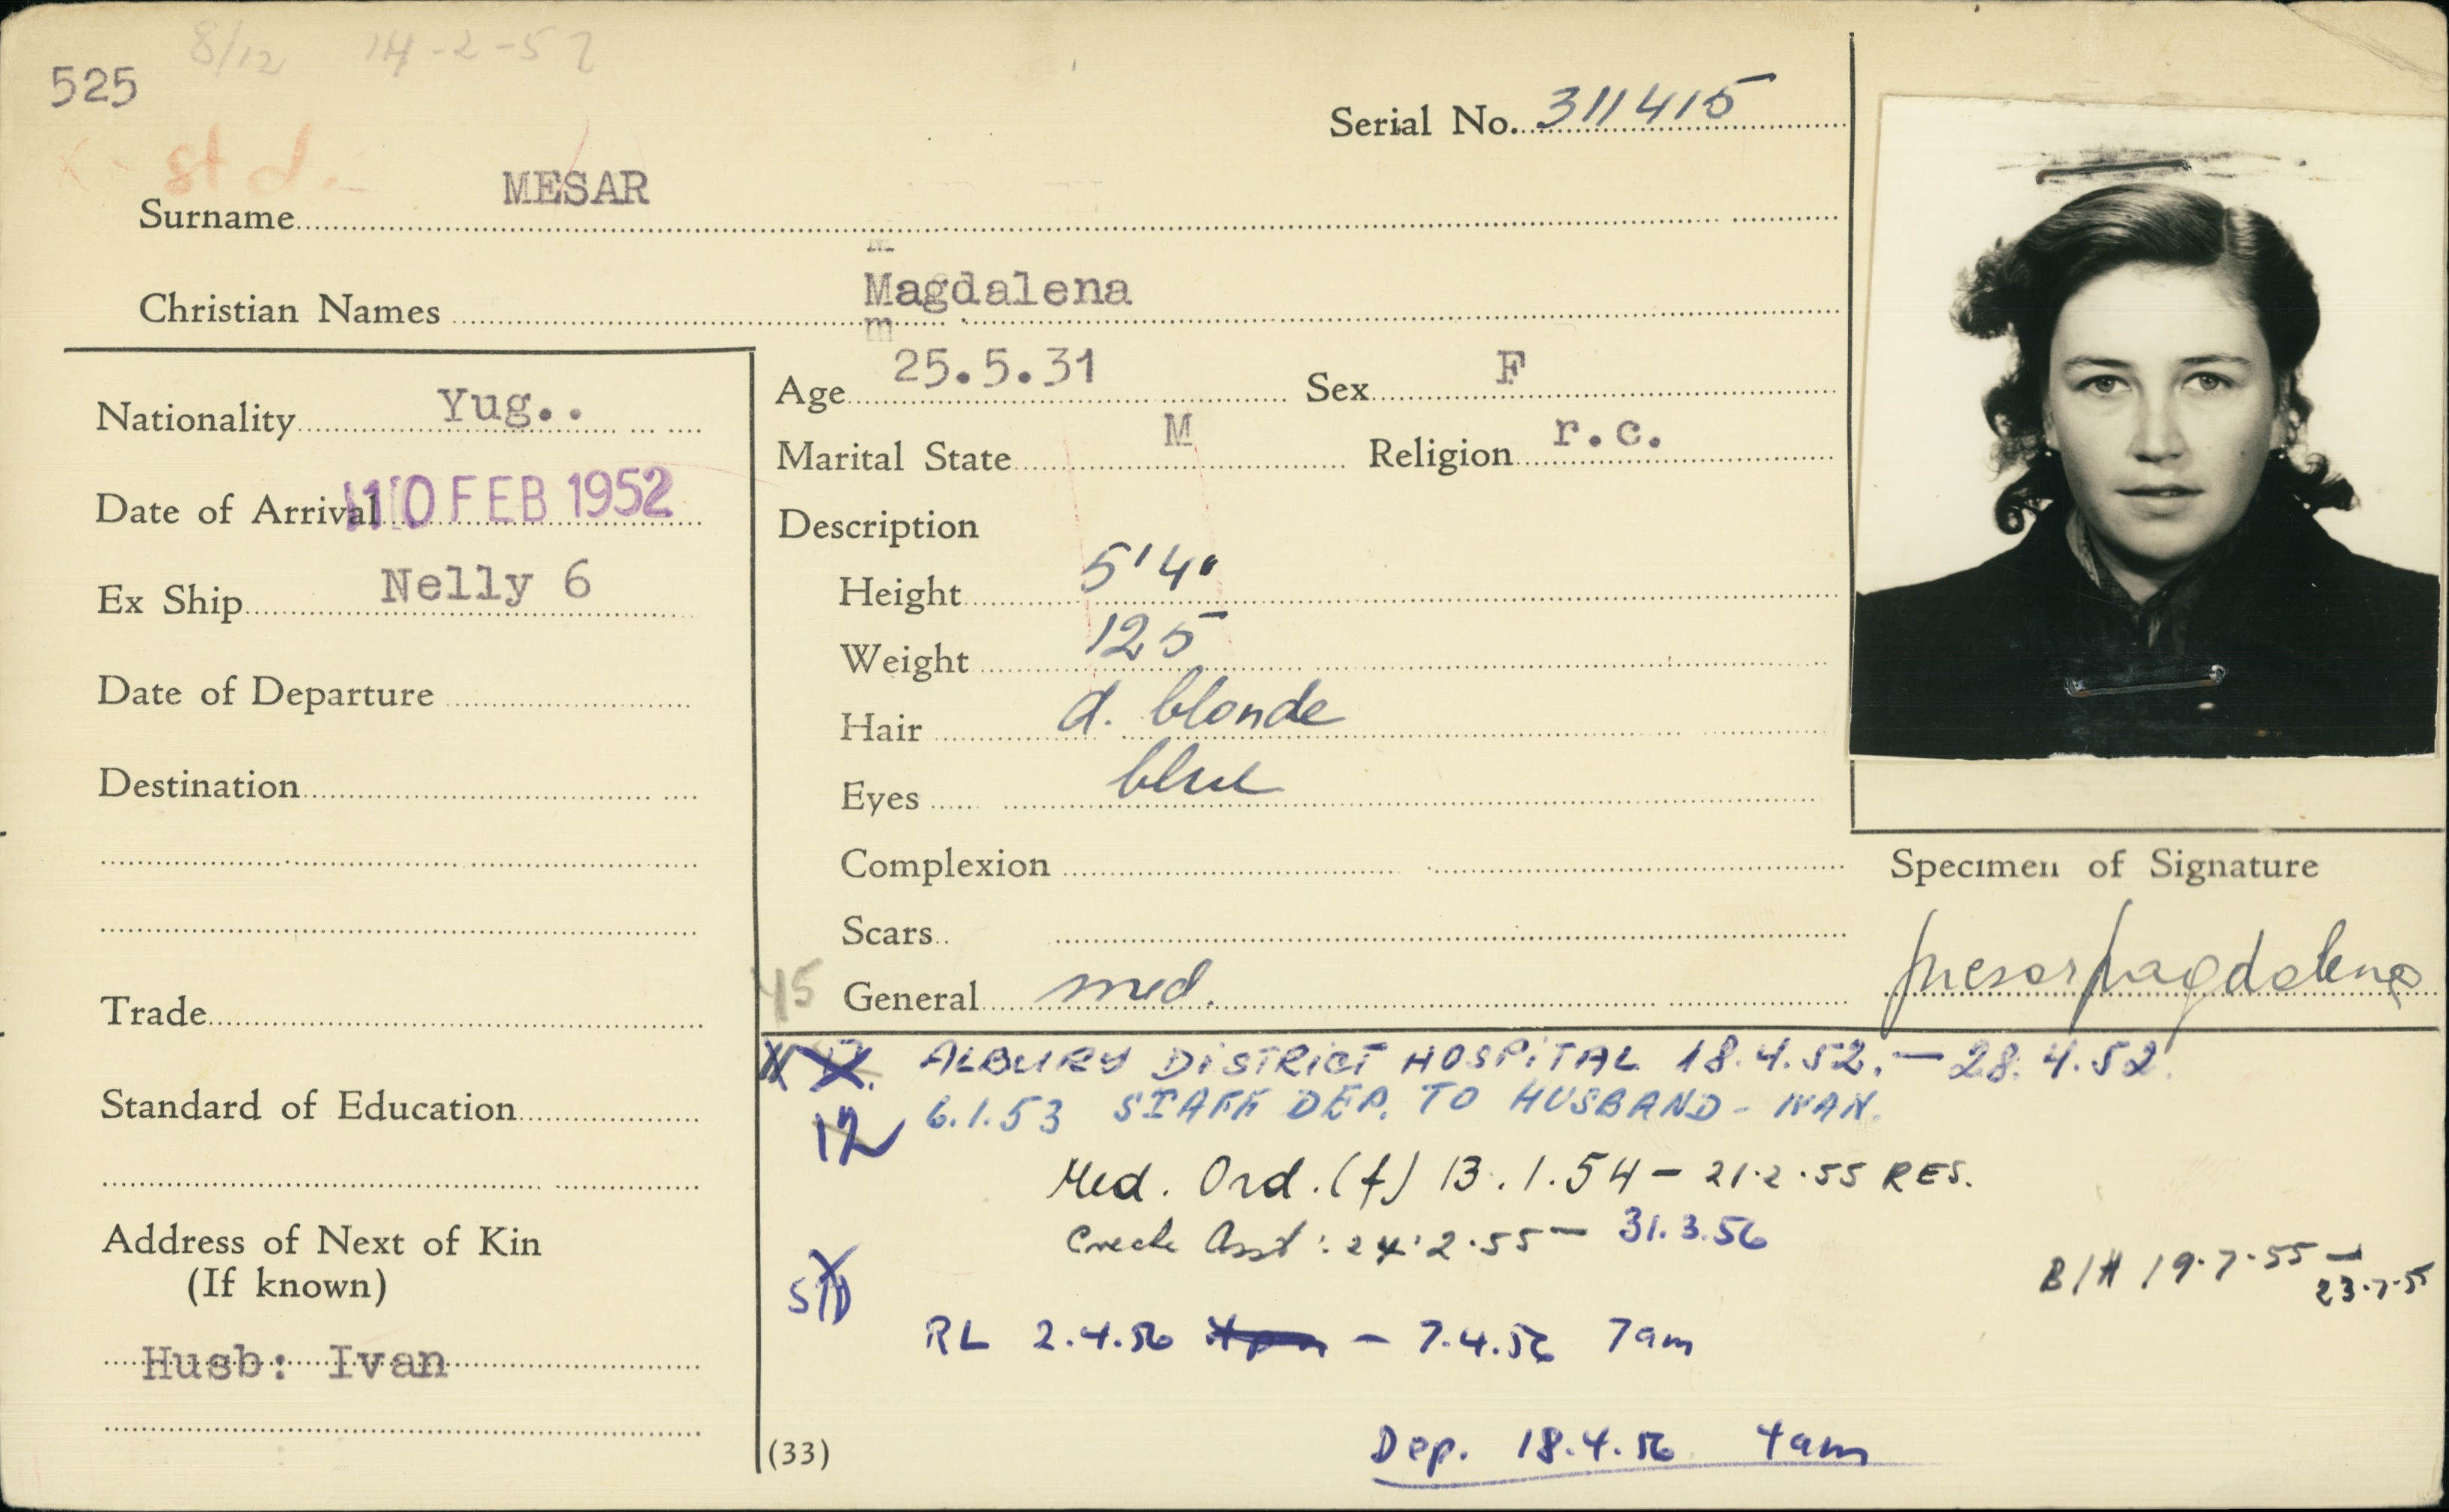 8/12 14-2-52
525
Serial No. 311415
st d.
Surname MESAR
Christian Names Magdalena
m
Nationality Yug..
Date of Arrival 10 FEB 1952
Ex Ship Nelly 6
Date of Departure
Destination
Trade
Standard of Education
Address of Next of Kin
(If known)
Husb: Ivan
Age 25.5.31 Sex F
Marital State M Religion r.c.
Description
Height 5'4"
Weight 125
Hair d. blonde
Eyes blue
Complexion
Scars
45 General med.
Specimen of Signature
Mesar Magdalena
ALBURY DISTRICT HOSPITAL 18.4.52. — 28.4.52.
12 6.1.53 STAFF DEP. TO HUSBAND - IVAN.
Med. Ord. (f) 13.1.54 - 21.2.55 RES.
Creche Asst: 24.2.55 - 31.3.56
B/H 19.7.55 - 23.7.55
RL 2.4.56 - 7.4.56 7am
Dep. 18.4.56 4am
(33)